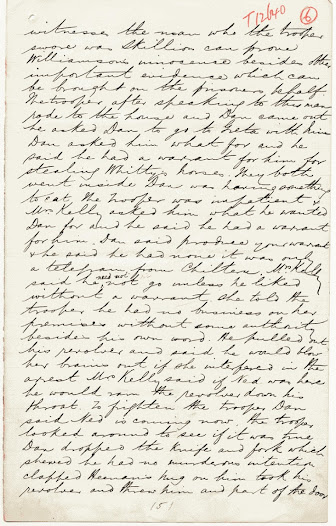 T12640 6
witnesses the man who the trooper
swore was Skillion can prove
Williamson's innocence besides other
important evidence which can
be brought on the prisoners behalf
The trooper after speaking to this man
rode to the house and Dan came out
he asked Dan to go to Greta with him
Dan asked him what for and he
said he had a warrant for him for
stealing Whittys horses. They both
went inside Dan was having something
to eat the trooper was impatient &
Mrs Kelly asked him what he wanted
Dan for and he said he had a warrant
for him. Dan said produce your warrant
& he said he had none it was only
a telegram from Chiltern. Mrs Kelly
said he need not go unless he liked
without a warrant she told the
trooper he had no business on her
premises without some authority
besides his own word. He pulled out
his revolver and said he would blow
her brains out if she interfered in the
arrest Mrs Kelly said if Ned was here
he would ram the revolver down his
throat. To frighten the trooper Dan
said Ned is coming now the trooper
looked around to see if it was true
Dan dropped the knife and fork which
shewed he had no murderous intention
clapped Heenan's hug on him took his
revolver and threw him and part of the door
(5)